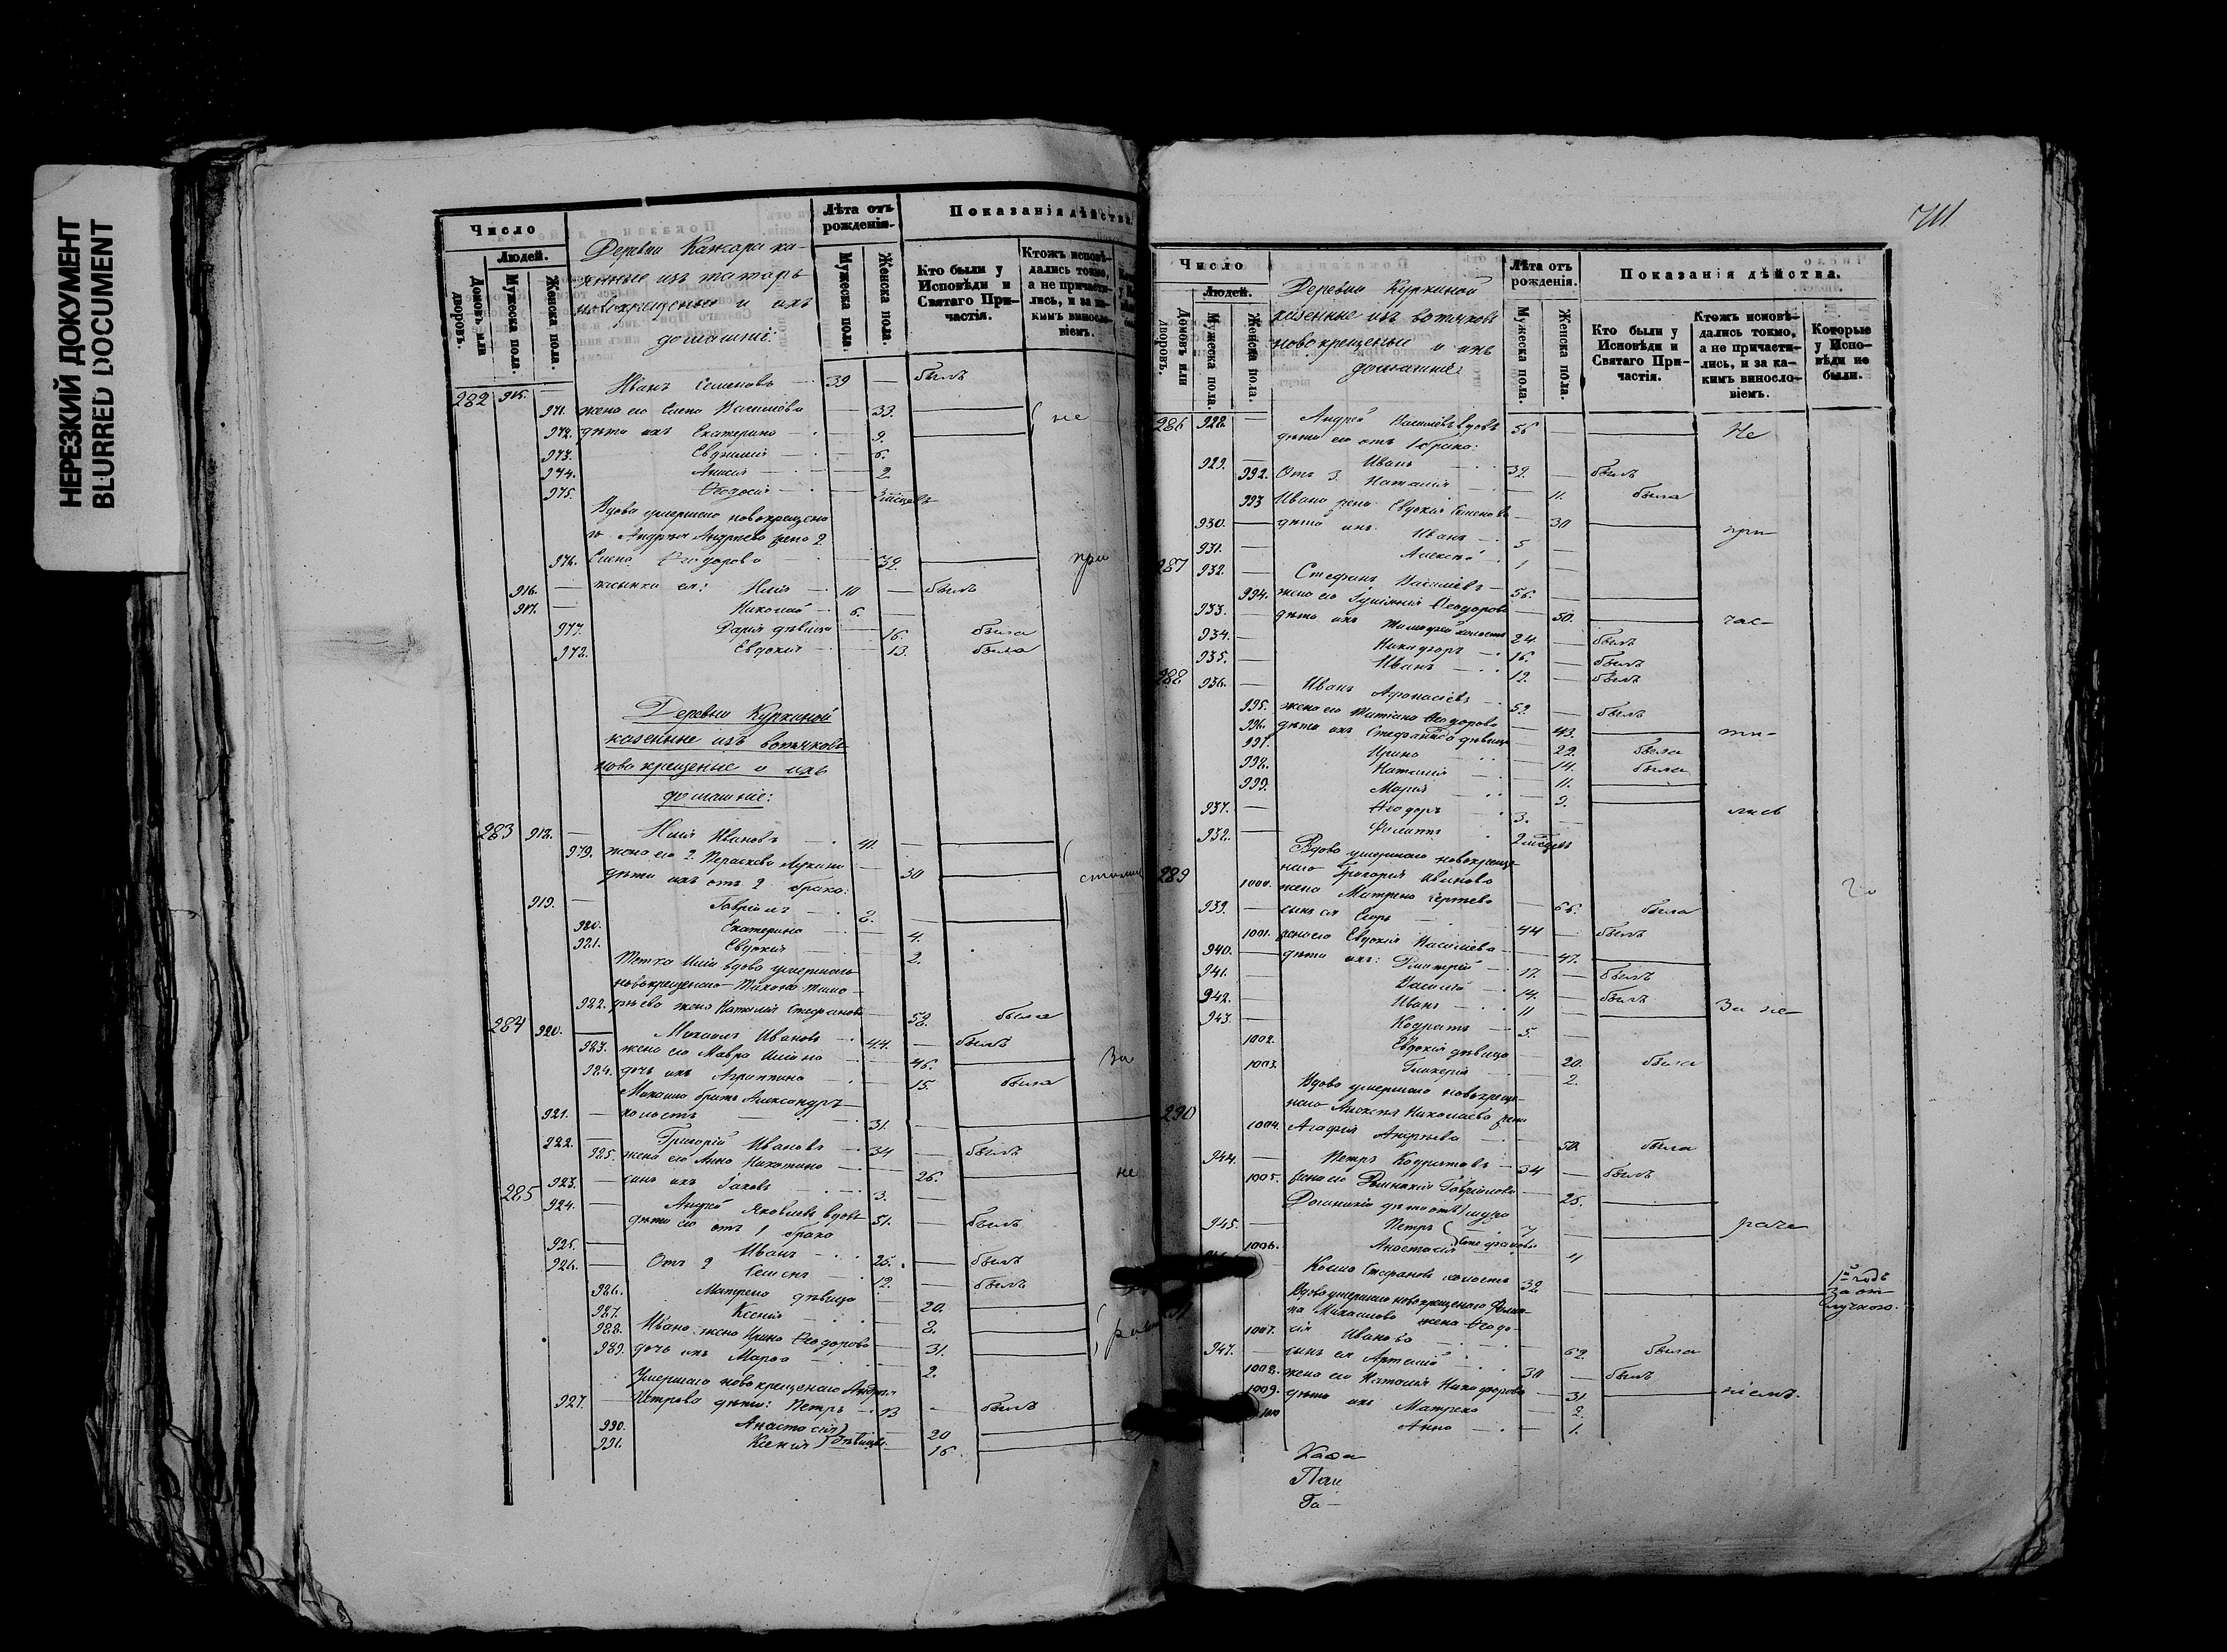 НЕРЕЗКИЙ ДОКУМЕНТ
BLURRED DOCUMENT
Число
Людей.
Домовъ или дворовъ.
Мужеска пола.
Женска пола.
Деревни
из татаръ
новокрещеные и ихъ
домашніе:
Лѣта отъ рожденія.
Мужеска пола.
Женска пола.
Показанія дѣйства.
Кто были у Исповѣди и Святаго Причастія.
Ктожъ исповѣдались токмо, а не причастились, и за какимъ винословіемъ.
282 915. — Иванъ Семеновъ — 39 — былъ
971. жена его Елена Василіева — 39. не
972. дѣти ихъ Екатерина 9.
973. Евдокія 6.
974. Анисія 2.
975. Ѳеодосія 3 мѣсяцовъ
Вдова умершаго новокрещена
го Андрея Андреева жена 2
976. Елена Ѳеодорова 39. при
916. — пасынки ея: Илія — 10 — былъ
917. — Николай — 6. —
977. Дарія дѣвица — 16. была
978. Евдокія — 13. была
Деревни Куркиной
казенные изъ вотяковъ
новокрещеные и ихъ
домашніе:
283 918. — Илія Ивановъ — 41. —
979. жена его 2. Параскева — 30
дѣти ихъ отъ 2 брака:
919. — Гавріилъ — 8. —
980. Екатерина — 4.
981. Евдокія — 2.
Тетка Иліи вдова умершаго
новокрещенаго Тихона Тимо-
982. фѣева жена Наталія Стефанова 58. была
284 920. — Михаилъ Ивановъ 44. — былъ
983. жена его Мавра Иліина 46. За
984. дочь ихъ Агриппина — 15. была
Михаила братъ Александръ
921. — холостъ 31. —
922. — Григорій Ивановъ — 34 — былъ
985. жена его Анна Никитина 26. не
923. — сынъ ихъ Іаковъ 3. —
285 924. — Андрей Яковлевъ вдовъ 51. — былъ
дѣти его отъ 1 брака
925. — Иванъ 25. — былъ
926. — Отъ 2 Семенъ 12. — былъ
986. Матрена дѣвица — 20.
987. Ксенія — 8.
988. Ивана жена Ирина Ѳеодорова 31.
989. дочь ихъ Марѳа 2.
Умершаго новокрещенаго Андрея
927. — Петрова дѣти: Петръ — 13 — былъ
990. Анастасія 20
991. Ксенія дѣвицы 16.
741
Число
Людей.
Домовъ или дворовъ.
Мужеска пола.
Женска пола.
Деревни Куркиной
казенные изъ вотяковъ
новокрещеные и ихъ
домашніе
Лѣта отъ рожденія.
Мужеска пола.
Женска пола.
Показанія дѣйства.
Кто были у Исповѣди и Святаго Причастія.
Ктожъ исповѣдались токмо, а не причастились, и за какимъ винословіемъ.
Которые у Исповѣди не были.
286 928. — Андрей Василіевъ вдовъ 56 — Не
дѣти его отъ 1 брака:
929. — Иванъ 32. — былъ
992. Отъ 3. Наталія — 11. была
993 Ивана жена Евдокія Семенова 30
930. — дѣти ихъ Иванъ 5 — при-
931. — Алексѣй 1 —
287 932. — Стефанъ Василіевъ 56. —
994. жена его Іуліянія Ѳеодорова 50. час-
933. — дѣти ихъ Тимоѳей холостъ 24. — былъ
934. — Никифоръ 16. — былъ
935. — Иванъ 12. — былъ
288 936. — Иванъ Афонасіевъ 59. — былъ
995. жена его Татіана Ѳеодорова 43. ти-
996. дѣти ихъ Стефанида дѣвица 22. была
997. Ирина 14. была
998. Наталія 11.
999. Марія 9.
937. — Ѳеодоръ 3. — лись
938. — Филиппъ 2 мѣсяцевъ
289 Вдова умершаго новокреще-
наго Григорія Иванова
1000. жена Матрена Сергѣева — 66. была
939. — сынъ ея Егоръ 44 — былъ
1001. жена его Евдокія Василіева — 47.
940. — дѣти ихъ: Дмитрій 17. — былъ
941. — Василій 14. — былъ
942. — Иванъ 11 — За не-
943. — Кодратъ 5. —
1002. Евдокія дѣвица 20. была
1003. Гликерія 2.
290 Вдова умершаго новокреще-
наго Алексѣя Николаева жена
1004. Агафія Андреева 50. была
944. — Петръ Кодратовъ — 34 — былъ
1005. жена его Домникія Гавріилова 25.
Домникіи дѣти отъ 1 мужа
945. — Петръ 7 — раче
1006. Анастасія Стефановы 4
Козма Стефановъ холостъ 32. 1й годъ
за от
лучкою.
Вдова умершаго новокрещенаго Фили-
па Михаилова жена Ѳеодо-
1007. сія Иванова 62. была
947. — сынъ ея Артемій 30 — былъ
1008. жена его Наталія Никифорова 31. ніемъ.
1009. дѣти ихъ Матрена 2.
Анна 1.